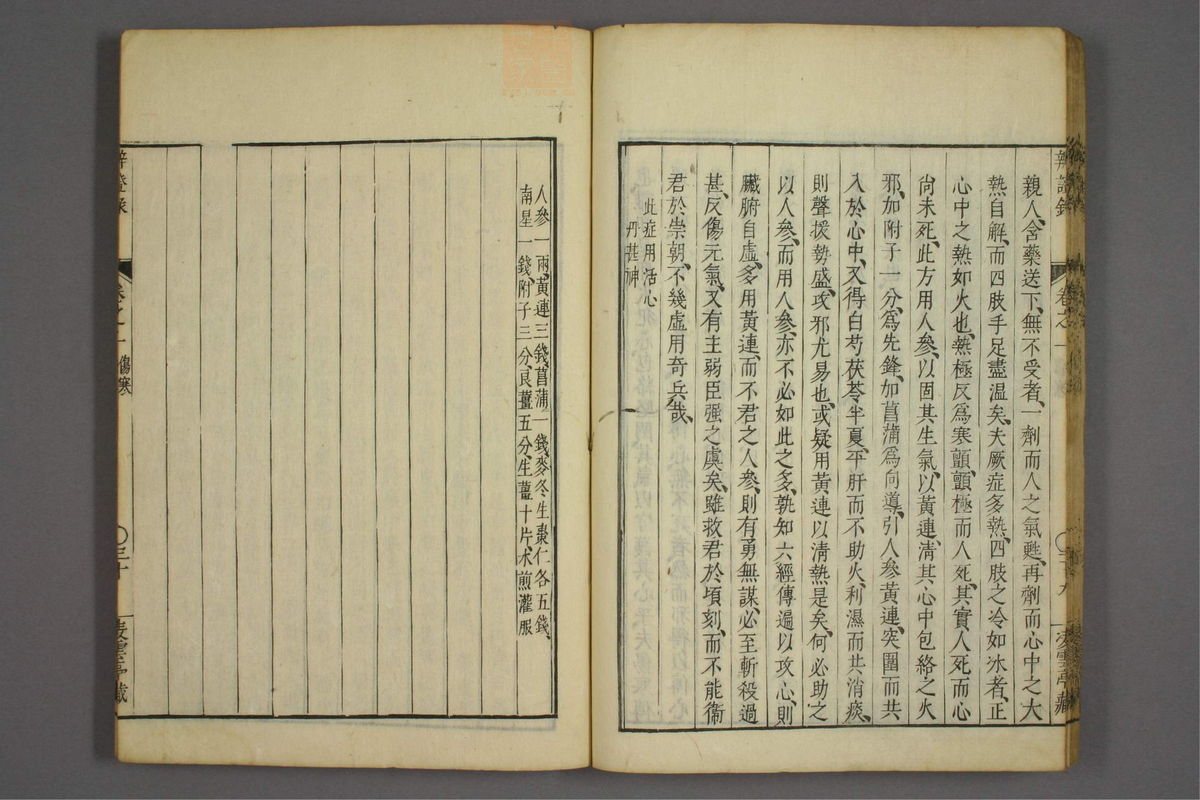 親人、舍藥送下、無不受者、一劑而人之氣甦、再劑而心中之大
熱自解、而四肢手足盡温矣、夫厥症多熱、四肢之冷如氷者、正
心中之熱如火也、熱極反爲寒顫、顫極而人死、其實人死而心
尚未死、此方用人參、以固其生氣、以黃連、清其心中包絡之火
邪、加附子一分、爲先鋒、加菖蒲爲向導、引人參黃連、突圍而共
入於心中、又得白芍茯苓半夏、平肝而不助火、利濕而共消痰、
則聲援勢盛、攻邪尤易也、或疑用黃連以清熱是矣、何必助之
以人參、而用人參、亦不必如此之多、孰知六經傳遍以攻心、則
臟腑自虛、多用黃連、而不君之人參、則有勇無謀、必至斬殺過
甚、反傷元氣、又有主弱臣强之虞矣、雖救君於頃刻、而不能衛
君於崇朝、不幾虛用奇兵哉、
此症用活心
丹甚神
人參一兩、黃連三錢、菖蒲一錢、麥冬生棗仁各五錢、
南星一錢、附子三分、良薑五分、生薑十片、水煎灌服
辨證錄
卷之一
傷寒
〇三十